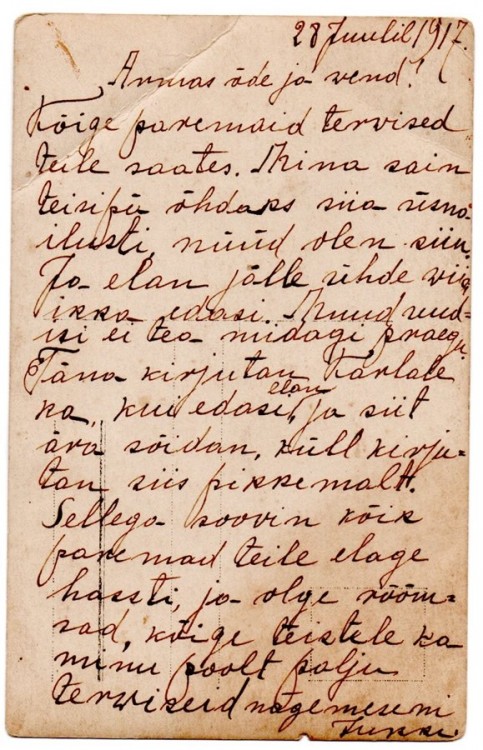 28 Juulil 1917.
Armas õde ja wend!
Kõige paremaid terwised
teile saates. Mina sain
teisipä õhdaks siia üsna
ilusti, nüüd olen siin.
Ja elan jälle ühde wiis
ikka edasi. Muud uud=
isi ei tea midagi praegu
Täna kirjutan Karlale
elan
ka, kui edasi, ja siit
ära sõidan, küll kirju=
tan siis pikkemalt.
Sellega soovin kõik
paremad teile elage
hassti, ja olge rõõm=
sad, kõige teistele ka
minu poolt palju
terwiseid nägemiseni